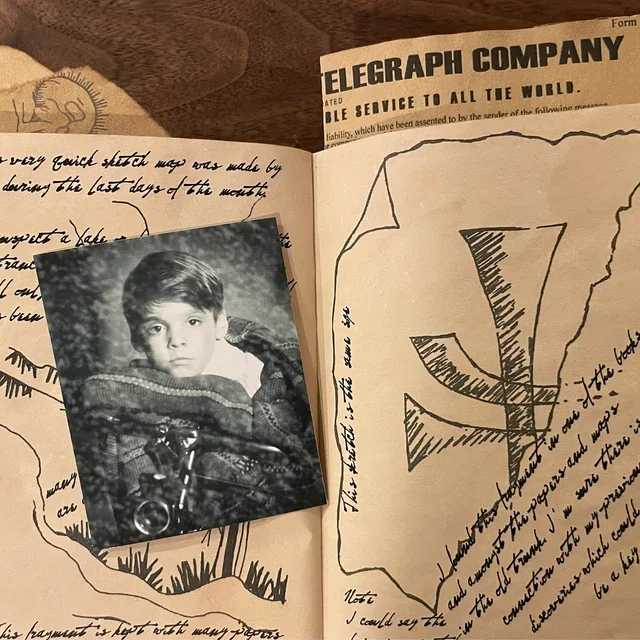 Form
TELEGRAPH COMPANY
ATED
BLE SERVICE TO ALL THE WORLD.
liability, which have been assented to by the sender of the following message
s very quick sketch map was made by
during the last days of the month.
suspect a lake or
tranc
ll only
s been
many
are
This fragment is kept with many papers
This sketch is the same spe
I found this fragment in one of the books
and amongst the papers and maps
in the old trunk I'm sure there is
connection with my previous
discoveries which could
be a key
Note
I could say the